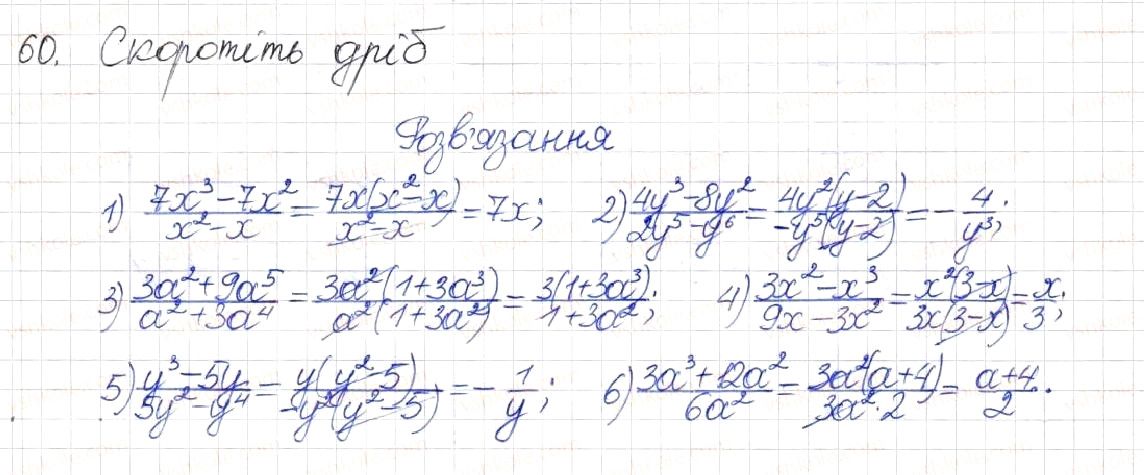 60. Скоротіть дріб
Розв'язання
1) (7x³-7x²)/(x²-x) = (7x(x²-x))/(x²-x) = 7x; 2) (4y³-8y²)/(2y⁵-y⁶) = (4y²(y-2))/(-y⁵(y-2)) = -4/y³;
3) (3a²+9a⁵)/(a²+3a⁴) = (3a²(1+3a³))/(a²(1+3a²)) = (3(1+3a³))/(1+3a²); 4) (3x²-x³)/(9x-3x²) = (x²(3-x))/(3x(3-x)) = x/3;
5) (y³-5y)/(5y²-y⁴) = (y(y²-5))/(-y²(y²-5)) = -1/y; 6) (3a³+12a²)/(6a²) = (3a²(a+4))/(3a²·2) = (a+4)/2.